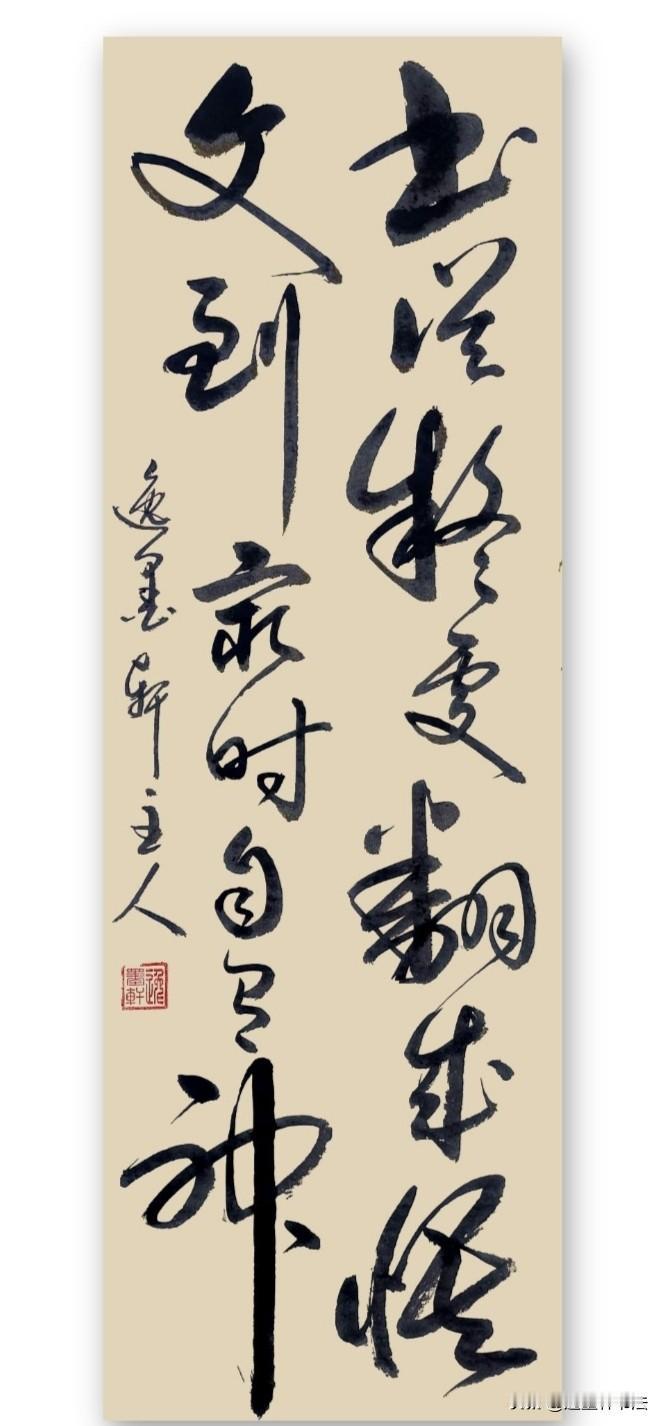 书從疑處翻成悟
文到穷时自有神
逸墨軒主人
逸墨軒